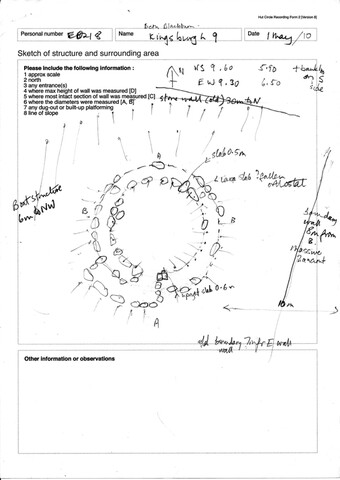 Hut Circle Recording Form 2 [Version 6]
Beth Blackburn
Personal number EB218
Name Kingsburgh 9
Date 1 May/10
Sketch of structure and surrounding area
Please include the following information :
1 approx scale
2 north
3 any entrance(s)
4 where max height of wall was measured [D]
5 where most intact section of wall was measured [C]
6 where the diameters were measured [A, B]
7 any dug-out or built-up platforming
8 line of slope
N
NS 9.60 5.50
EW 9.20 6.50
+ banking
on
side
stone wall (old) 30m to N
slab 0.5m
Large slab ? fallen
orthostat
Boat structure
6m to NW
A
B
B
boundary
wall
8m from
B
massive
10m
upright slab 0.6m
A
old boundary
wall
Other information or observations